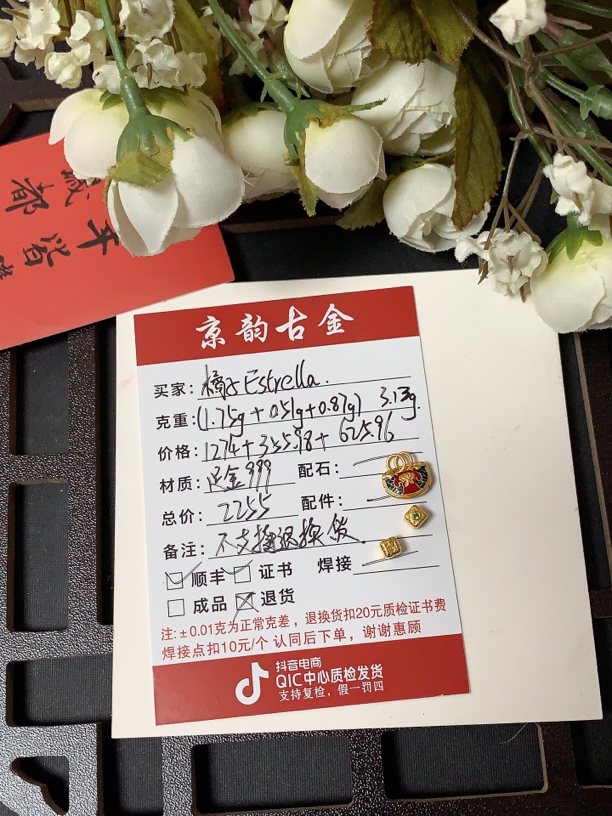 京韵古金
买家: 橘子Estrella.
克重: (1.75g + 0.51g + 0.87g) 3.13g.
价格: 1274 + 355.98 + 625.96
材质: 足金999 配石:
总价: 2255 配件:
备注: 不支持退换货
顺丰 证书 焊接
成品 退货
注:±0.01克为正常克差，退换货扣20元质检证书费
焊接点扣10元/个 认同后下单，谢谢惠顾
抖音电商
QIC中心质检发货
支持复检，假一罚四